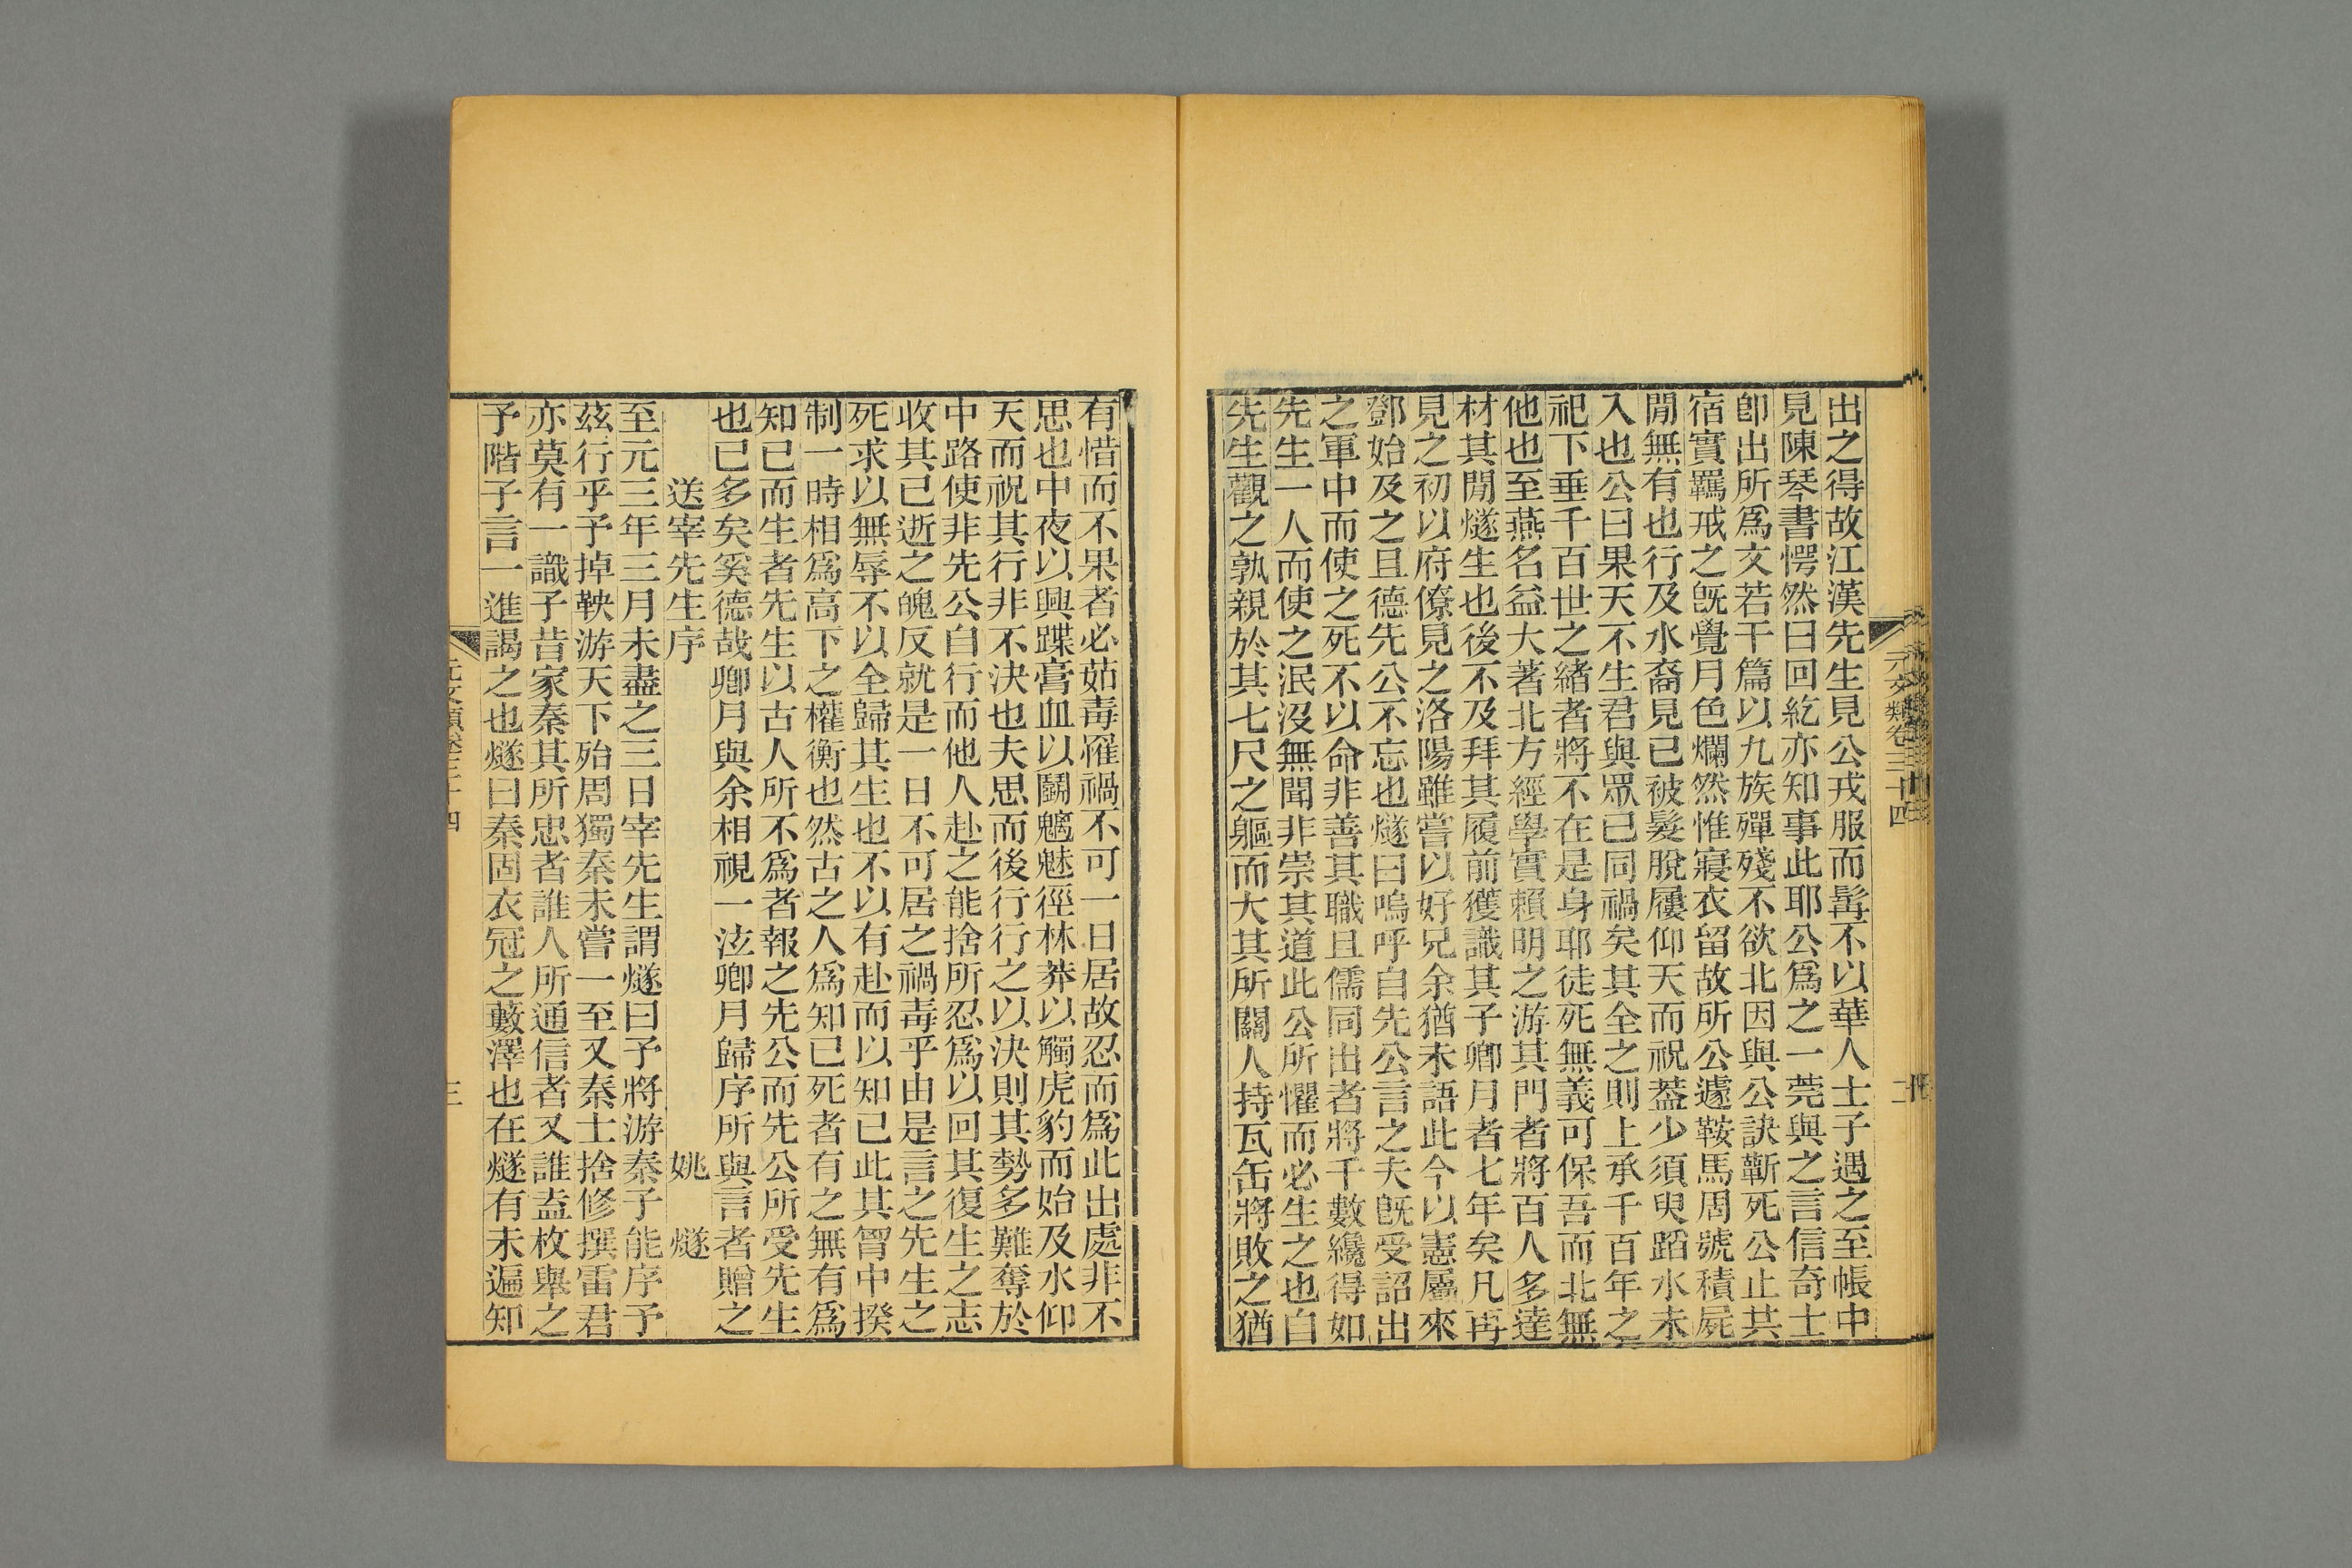 元文類卷三十四
二
出之得故江漢先生見公戎服而髯不以華人士子遇之至帳中
見陳琴書愕然曰回紇亦知事此耶公爲之一莞與之言信奇士
卽出所爲文若干篇以九族殫殘不欲北因與公訣蘄死公止其
宿實羈戒之旣覺月色爛然惟寢衣留故所公遽鞍馬周號積屍
閒無有也行及水裔見已被髮脫屨仰天而祝葢少須臾蹈水未
入也公曰果天不生君與眾已同禍矣其全之則上承千百年之
祀下垂千百世之緖者將不在是身耶徒死無義可保吾而北無
他也至燕名益大著北方經學實賴明之游其門者將百人多達
材其閒燧生也後不及拜其履前獲識其子卿月者七年矣凡再
見之初以府僚見之洛陽雖嘗以好兄余猶未語此今以憲屬來
鄧始及之且德先公不忘也燧曰嗚呼自先公言之夫旣受詔出
之軍中而使之死不以命非善其職且儒同出者將千數纔得如
先生一人而使之泯沒無聞非崇其道此公所懼而必生之也自
先生觀之孰親於其七尺之軀而大其所關人持瓦缶將敗之猶
有惜而不果者必茹毒罹禍不可一日居故忍而爲此出處非不
思也中夜以興蹀膏血以鬭魑魅徑林莽以觸虎豹而始及水仰
天而祝其行非不決也夫思而後行行之以決則其勢多難奪於
中路使非先公自行而他人赴之能捨所忍爲以回其復生之志
收其已逝之魄反就是一日不可居之禍毒乎由是言之先生之
死求以無辱不以全歸其生也不以有赴而以知已此其胷中揆
制一時相爲高下之權衡也然古之人爲知已死者有之無有爲
知已而生者先生以古人所不爲者報之先公而先公所受先生
也已多矣奚德哉卿月與余相視一泫卿月歸序所與言者贈之
送宰先生序　姚燧
至元三年三月未盡之三日宰先生謂燧曰予將游秦子能序予
茲行乎予掉鞅游天下殆周獨秦未嘗一至又秦士捨修撰雷君
亦莫有一識子昔家秦其所忠者誰人所通信者又誰盍枚舉之
予階子言一進謁之也燧曰秦固衣冠之藪澤也在燧有未遍知
元文類卷三十四
三